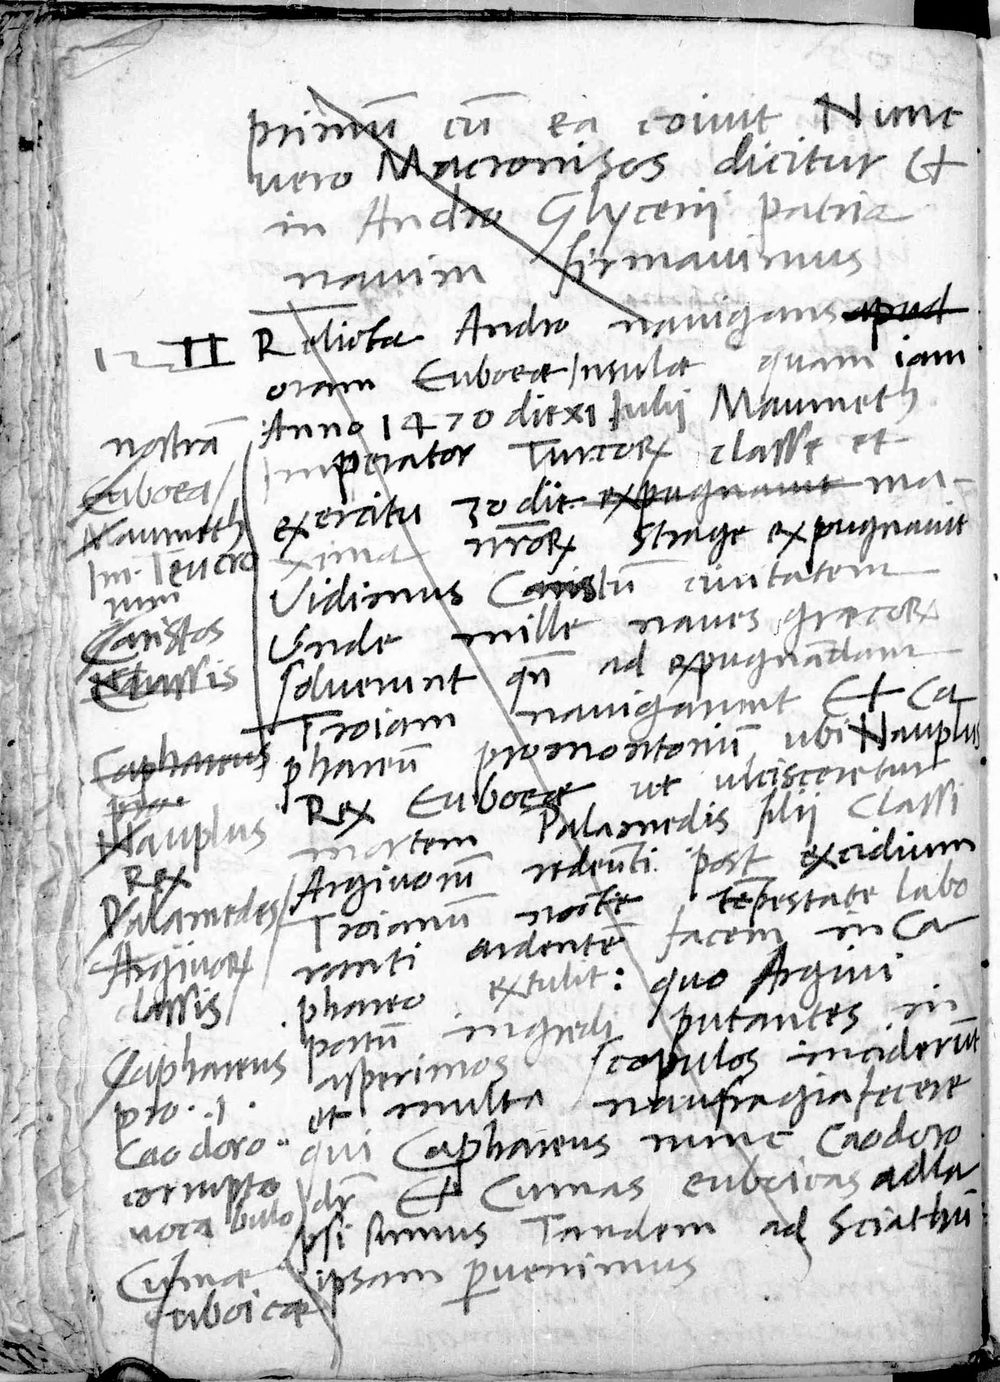 primū cū ea coiuit Nunc
uero Macronisos dicitur Et
in Andro Glycerij patria
nauim firmauimus
12 II Relicta Andro nauigans apud
oram Euboeæ Insulæ quam iam
Anno 1470 die xi Julij Maumeth
Imperator Turcoꝝ classe et
exercitu 30 die expugnauit ma-
xima nr̄oꝝ strage expugnauit
Vidimus Caristū ciuitatem
Vnde mille naues græcoꝝ
soluerunt qn̄ ad expugnādam
Troiam nauigarunt Et Ca
phareū promontoriū ubi Nauplus
Rex Euboeæ ut ulcisceretur
mortem Palamedis filij Classi
Argiuorū redeūti post excidium
Troianū nocte tēpestate labo
ranti ardentē facem in Ca
phareo extulit: quo Argiui
portū ingredi putantes in
asperimos scopulos inciderūt
et multa naufragia fecere
qui Caphareus nunc Caodoro
dr̄ Et Cumas euboicas adla
psi sumus Tandem ad Sciathū
ipsam ꝑuenimus
nostrā
Euboea
Maumeth
Im. Teucro
rum
Caristos
Classis
Caphareus
Nauplus
Rex
Palamedes
Argiuoꝝ
classis
Caphareus
pro. .1.
Caodoro
corrupto
uocabulo
Cumæ
euboicæ